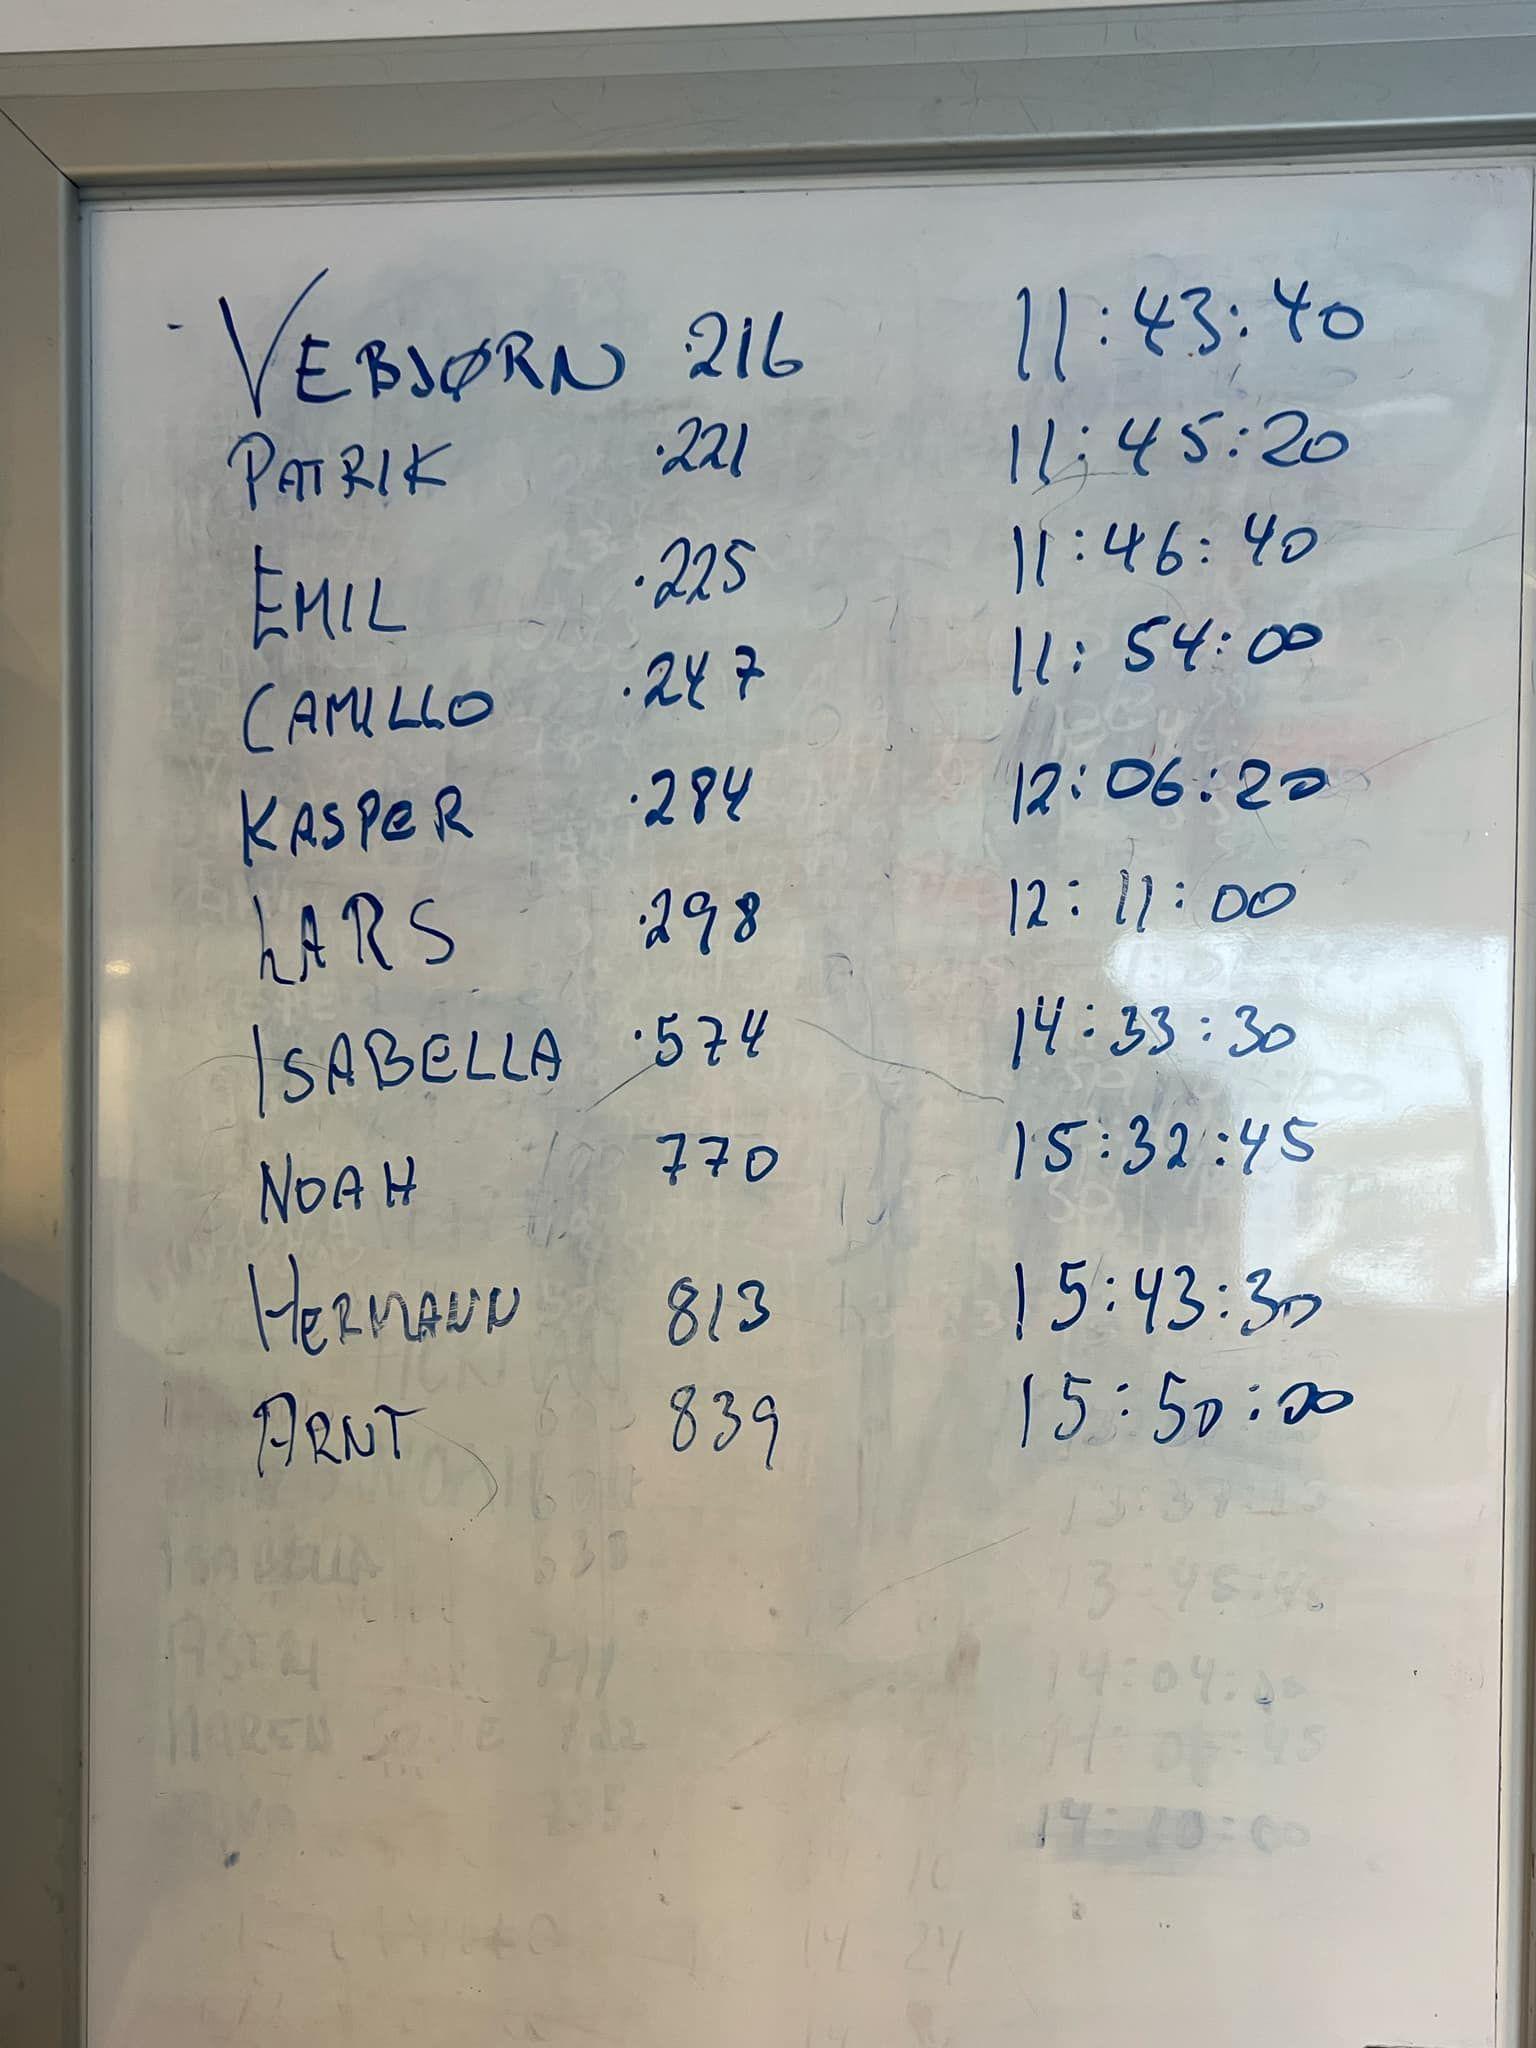 VEBJØRN .216 11:43:40
PATRIK .221 11:45:20
EMIL .225 11:46:40
CAMILLO .247 11:54:00
KASPER .284 12:06:20
LARS .298 12:11:00
ISABELLA .574 14:33:30
NOAH 770 15:32:45
HERMANN 813 15:43:30
ARNT 839 15:50:00
ISABELLA
14:04:00
14:10:00
14 24